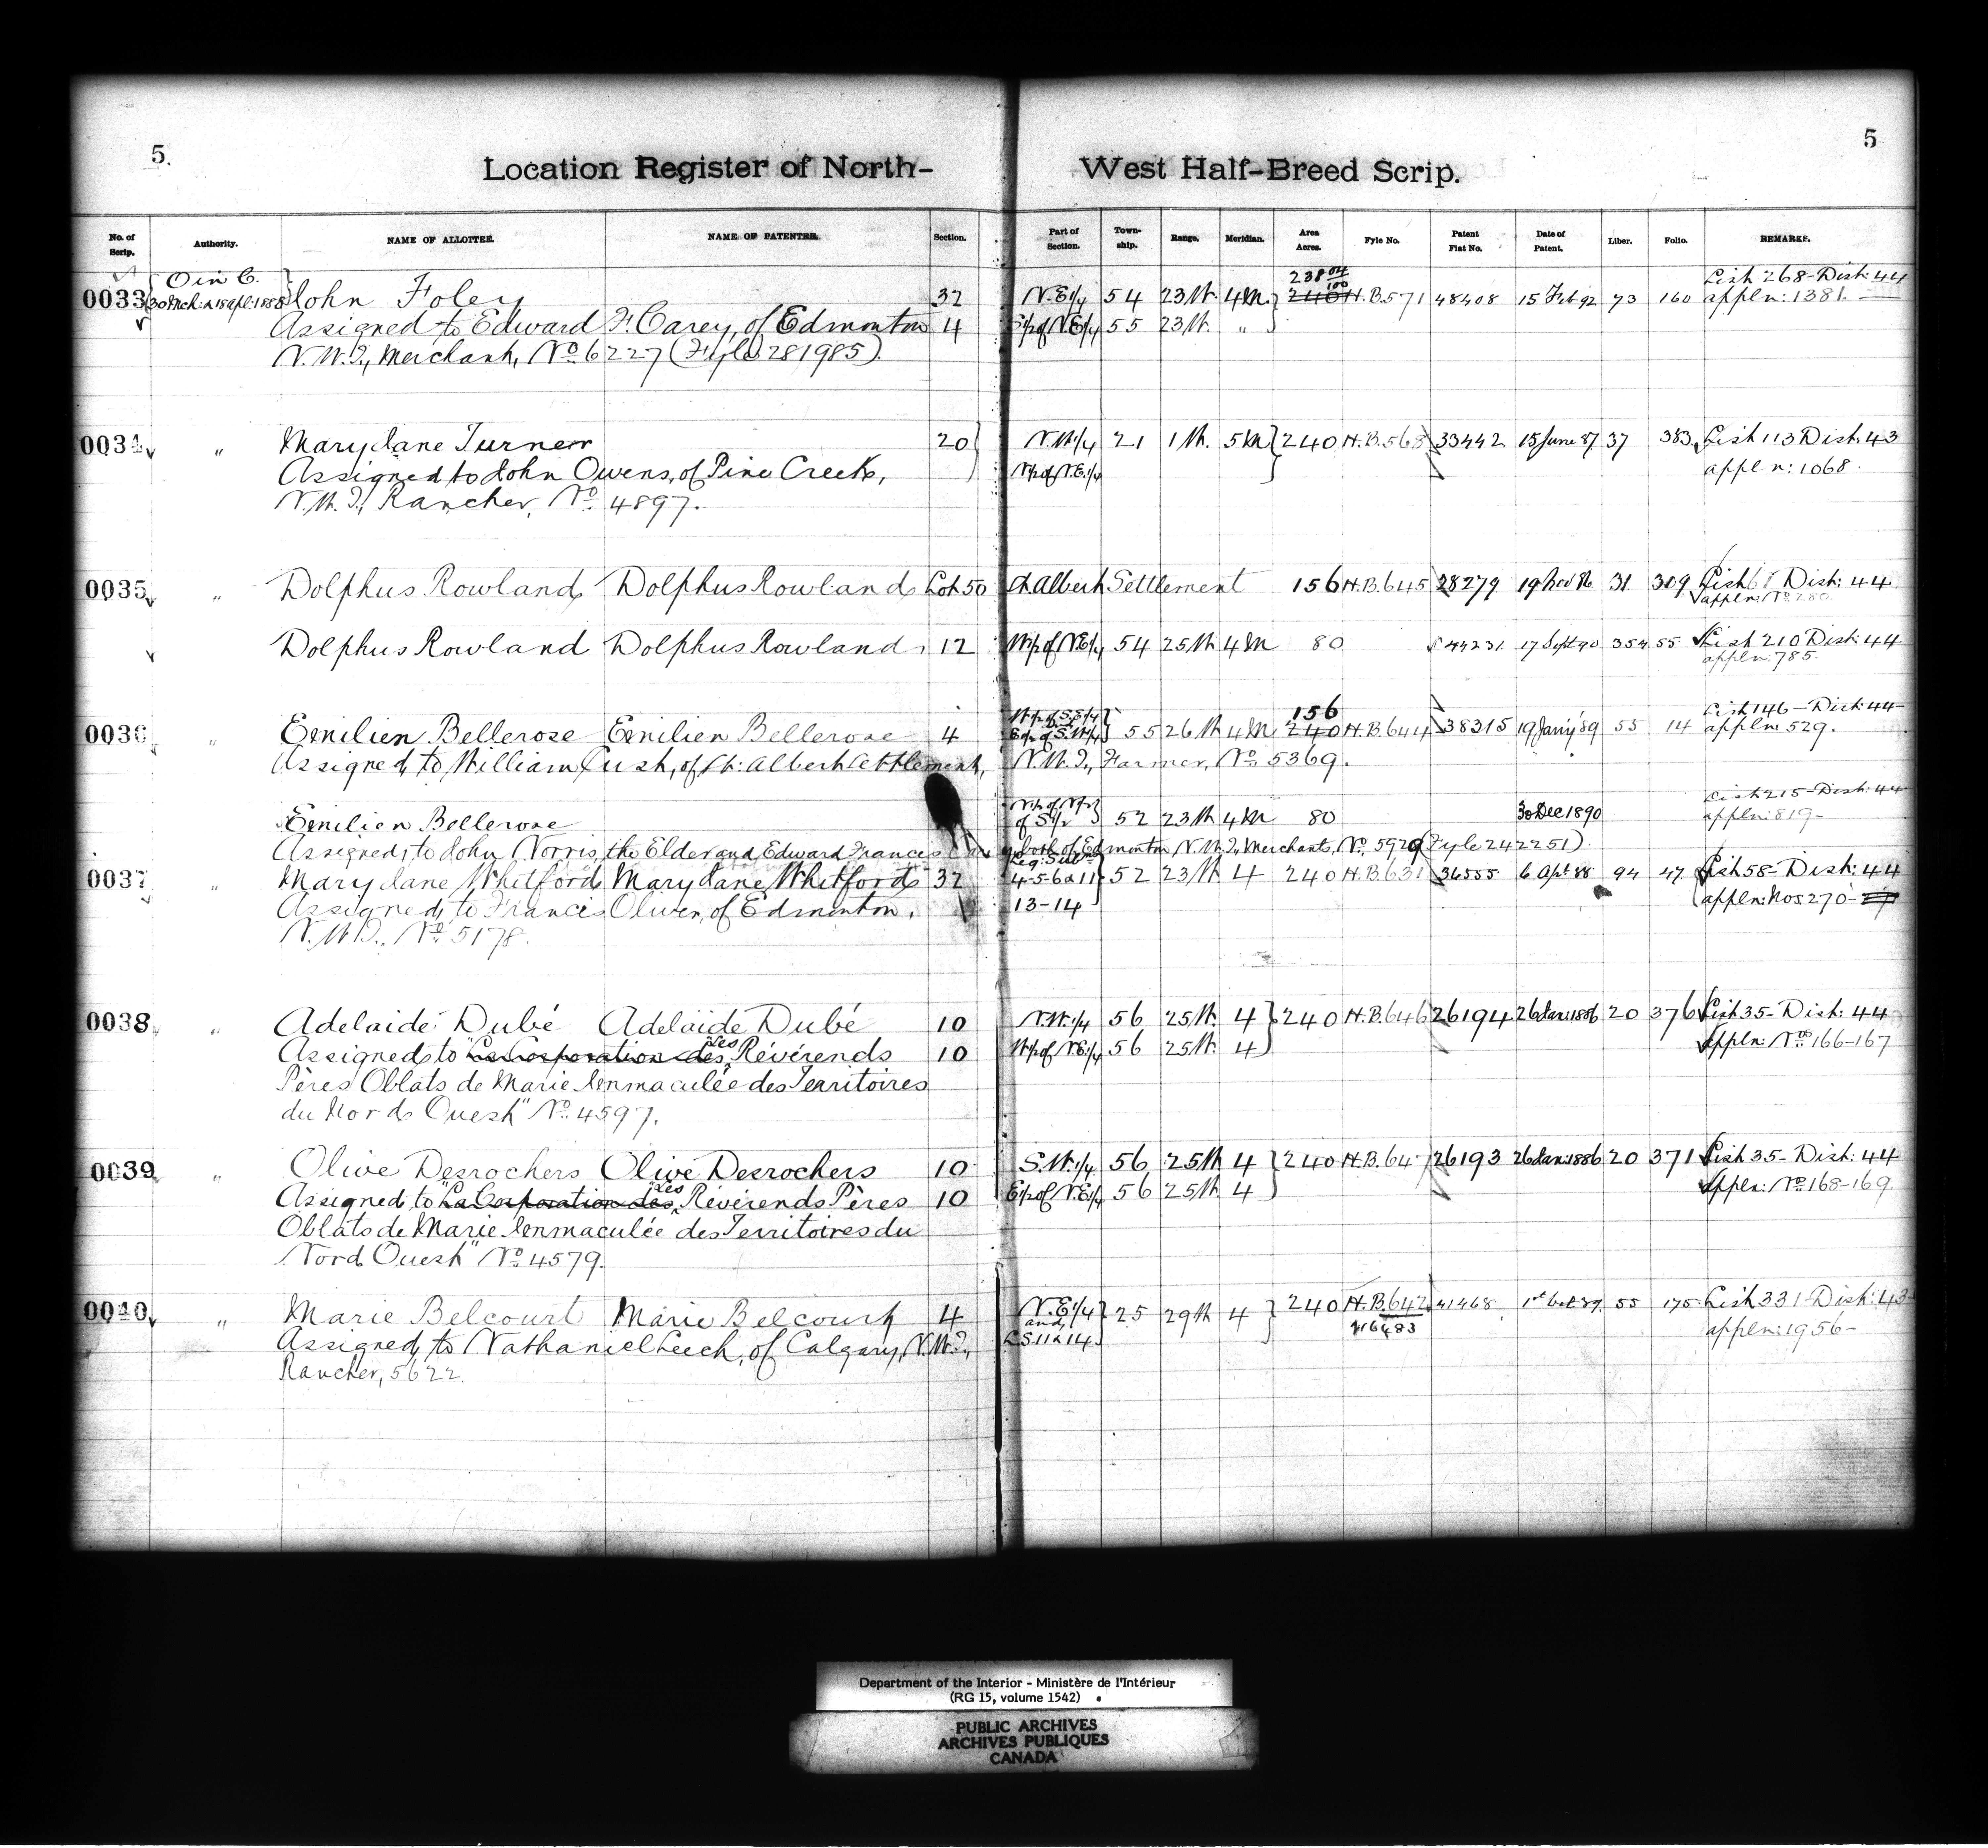 5.
5
Location Register of North-West Half-Breed Scrip.
No. of Scrip. Authority. NAME OF ALLOTTEE. NAME OF PATENTEE. Section. Part of Section. Town-ship. Range. Meridian. Area Acres. Fyle No. Patent Fiat No. Date of Patent. Liber. Folio. REMARKS.
O in C. 238 04/100 List 268-Dist: 44
0033 30 Mch: & 18 Apl: 1885 John Foley 32 N.E1/4 54 23W. 4M. 240 H.B.571 48408 15 Feb 92 73 160 appln: 1381.
Assigned to Edward F. Carey, of Edmonton 4 S1/2 of N.E1/4 55 23W. "
N.W.T., Merchant, No. 6227 (Fyle 281985).
0034 " Mary Jane Turner 20 N.W1/4 21 1W. 5M 240 H.B.568 33442 15 June 87 37 383 List 113 Dist: 43
Assigned to John Owens, of Pine Creek, N1/2 of N.E.1/4 appln: 1068.
N.W.T., Rancher, No. 4897.
0035 " Dolphus Rowland Dolphus Rowland Lot 50 St Albert Settlement 156 H.B.645 28279 19 Nov 86 31 309 List 61 Dist: 44
appln: No. 280
Dolphus Rowland Dolphus Rowland 12 W1/2 of N.E1/4 54 25W 4M 80 44231 17 Sept 90 354 55 List 210 Dist: 44
appln: 785.
W1/2 of S.E1/4 156 List 146-Dist: 44-
0036 " Emilien Bellerose Emilien Bellerose 4 E1/2 of S.W1/4 55 26W 4M 240 H.B.644 38315 19 Jany '89 55 14 appln 529.
Assigned to William Cush, of St: Albert Settlement, N.W.T., Farmer, No. 5369.
N1/2 of N1/2 List 215-Dist: 44
Emilien Bellerose of S1/2 52 23W 4M 80 30 Dec 1890 appln: 819-
Assigned to John Norris, the Elder and Edward Frances Carey both of Edmonton, N.W.T., Merchants, No. 5929 (Fyle 242251)
Leg: Subns
0037 " Mary Jane Whitford Mary Jane Whitford 32 4-5-6 & 11 52 23W. 4 240 H.B.631 36555 6 Apl 88 94 47 List 58-Dist: 44
Assigned to Francis Oliver, of Edmonton, 13-14 appln: Nos 270-
N.W.T., No. 5178.
0038 " Adelaide Dubé Adelaide Dubé 10 N.W.1/4 56 25W. 4 240 H.B.646 26194 26 Jan: 1886 20 376 List 35-Dist: 44
Assigned to "La Corporation des Les Révérends 10 W1/2 of N.E.1/4 56 25W. 4 Appln: Nos 166-167
Pères Oblats de Marie Immaculée des Territoires
du Nord Ouest" No. 4597.
0039 " Olive Desrochers Olive Desrochers 10 S.W.1/4 56 25W 4 240 H.B.647 26193 26 Jan: 1886 20 371 List 35-Dist: 44
Assigned to "La Corporation des Les Révérends Pères 10 E1/2 of N.E1/4 56 25W. 4 Appln: Nos 168-169
Oblats de Marie Immaculée des Territoires du
Nord Ouest" No. 4579.
0040 " Marie Belcourt Marie Belcourt 4 N.E1/4 25 29W 4 240 H.B.642 41468 1st Oct 89 55 175 List 331-Dist: 43-
and 216483
Assigned to Nathaniel Leech, of Calgary, N.W.T., L.S. 11 & 14 appln: 1956-
Rancher, 5622.
Department of the Interior - Ministère de l'Intérieur
(RG 15, volume 1542)
PUBLIC ARCHIVES
ARCHIVES PUBLIQUES
CANADA